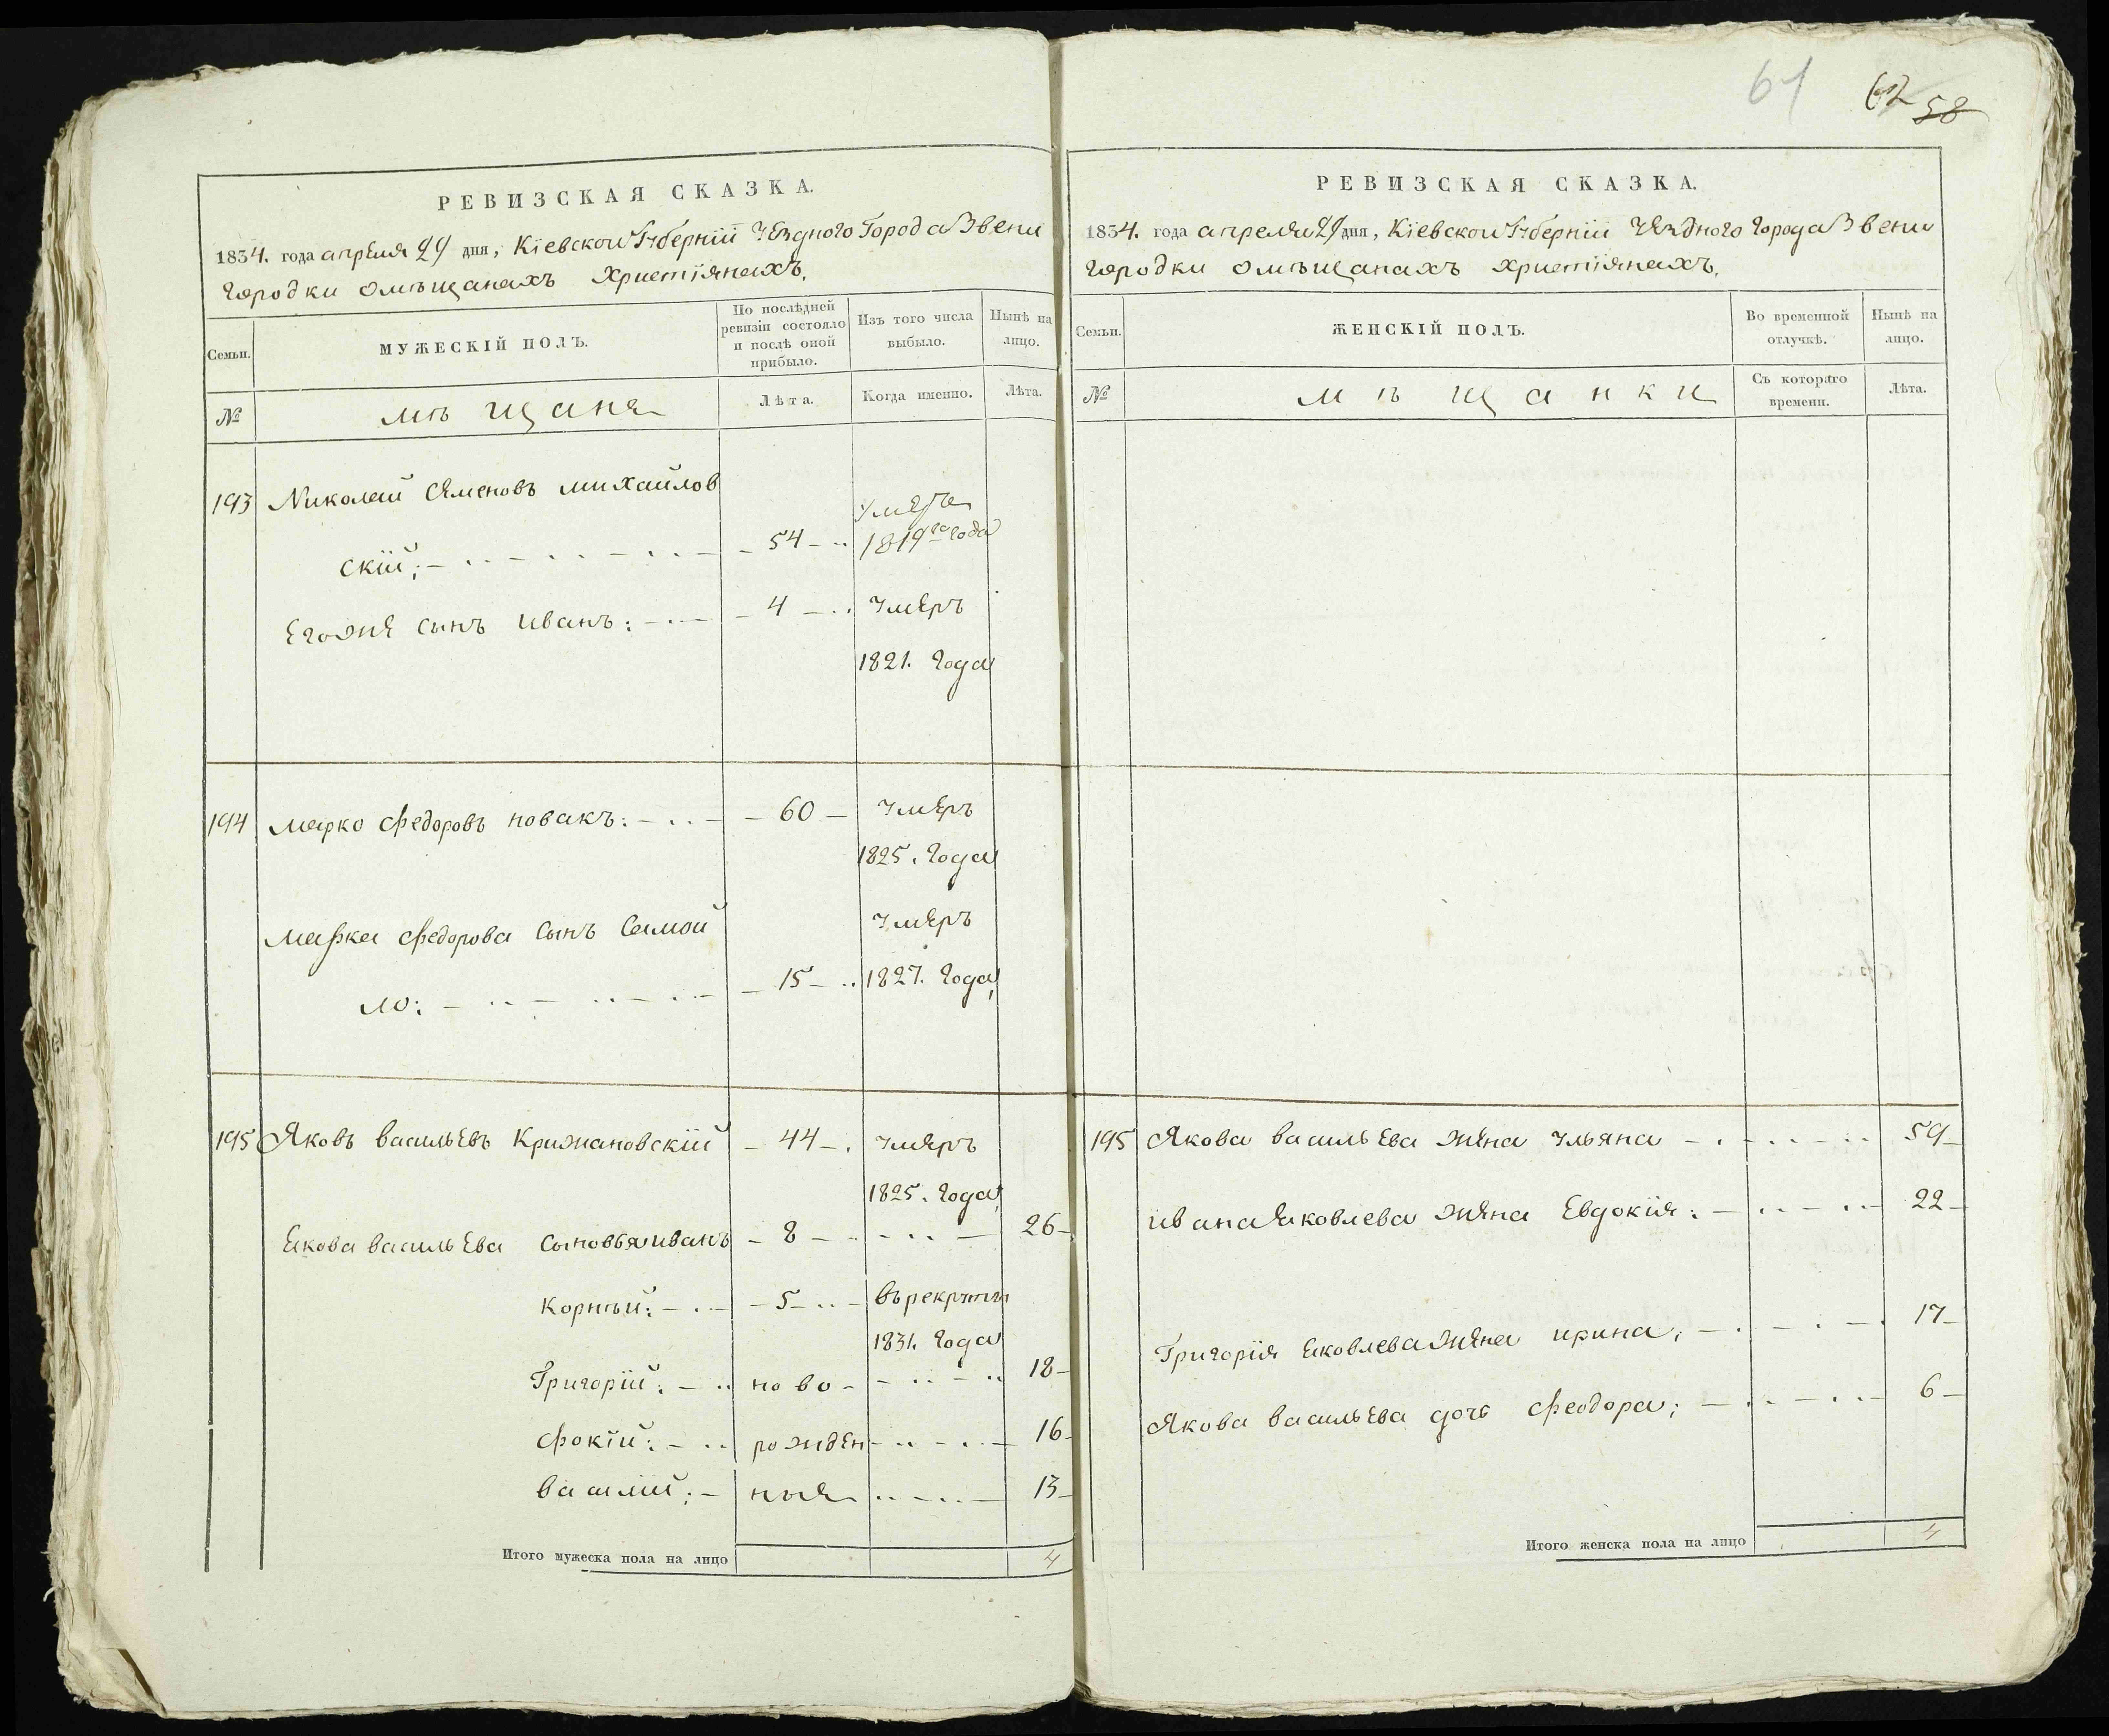 61
62
58
РЕВИЗСКАЯ СКАЗКА.
1834. года апреля 29 дня, Кіевской Губерніи Уезднаго Города Звени
городки омѣщанахъ христіянахъ.
Семьи.
МУЖЕСКІЙ ПОЛЪ.
По послѣдней
ревизіи состояло
и послѣ оной
прибыло.
Изъ того числа
выбыло.
Нынѣ на
лицо.
№
мѣщане
Лѣта.
Когда именно.
Лѣта.
193 Николай Семеновъ михайлов
скій; 54 умре 1819го года
Егоже сынъ иванъ: 4 умеръ
1821. года
194 марко федоровъ новакъ: 60 умеръ
1825. года
марка федорова сынъ Самой
умеръ
ло: 15 1827. года
195 Яковъ васильевъ Крижановскій 44 умеръ
1825. года
Якова васильева сыновья иванъ 8 26
корнѣй: 5 върекруты
1831. года
Григорій: ново 18
фокій: рожден 16
василій: ные 13
Итого мужеска пола на лицо 4
РЕВИЗСКАЯ СКАЗКА.
1834. года апреля 29 дня, Кіевской Губерніи Уезднаго города Звени
городки омѣщанахъ христіянахъ.
Семьи.
ЖЕНСКІЙ ПОЛЪ.
Во временной
отлучкѣ.
Нынѣ на
лицо.
№
мѣщанки
Съ котораго
времени.
Лѣта.
195 Якова васильева жена ульяна 59
ивана яковлева жена Евдокія: 22
Григорія яковлева жена ирина; 17
Якова васильева дочь феодора; 6
Итого женска пола на лицо 4